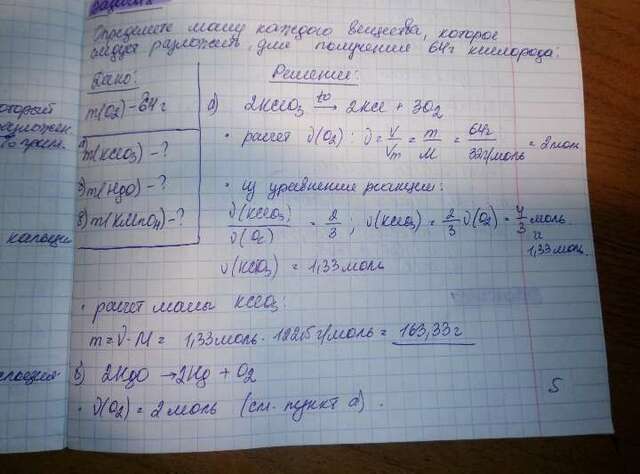 Определите массу каждого вещества, которое
следует разложить, для получения 64г кислорода:
Дано:
m(O₂) - 64 г
а) m(KClO₃) - ?
б) m(HgO) - ?
в) m(KMnO₄) - ?
Решение:
а) 2KClO₃ →(t°) 2KCl + 3O₂
• расчет ν(O₂): ν = V/Vm = m/M = 64г/32г/моль = 2 моль
• из уравнения реакции:
ν(KClO₃)/ν(O₂) = 2/3; ν(KClO₃) = 2/3 ν(O₂) = 4/3 моль
и
1,33 моль.
ν(KClO₃) = 1,33 моль
• расчет массы KClO₃:
m = ν · M = 1,33 моль · 122,5 г/моль = 163,33 г
б) 2HgO → 2Hg + O₂
• ν(O₂) = 2 моль (см. пункт а).
5